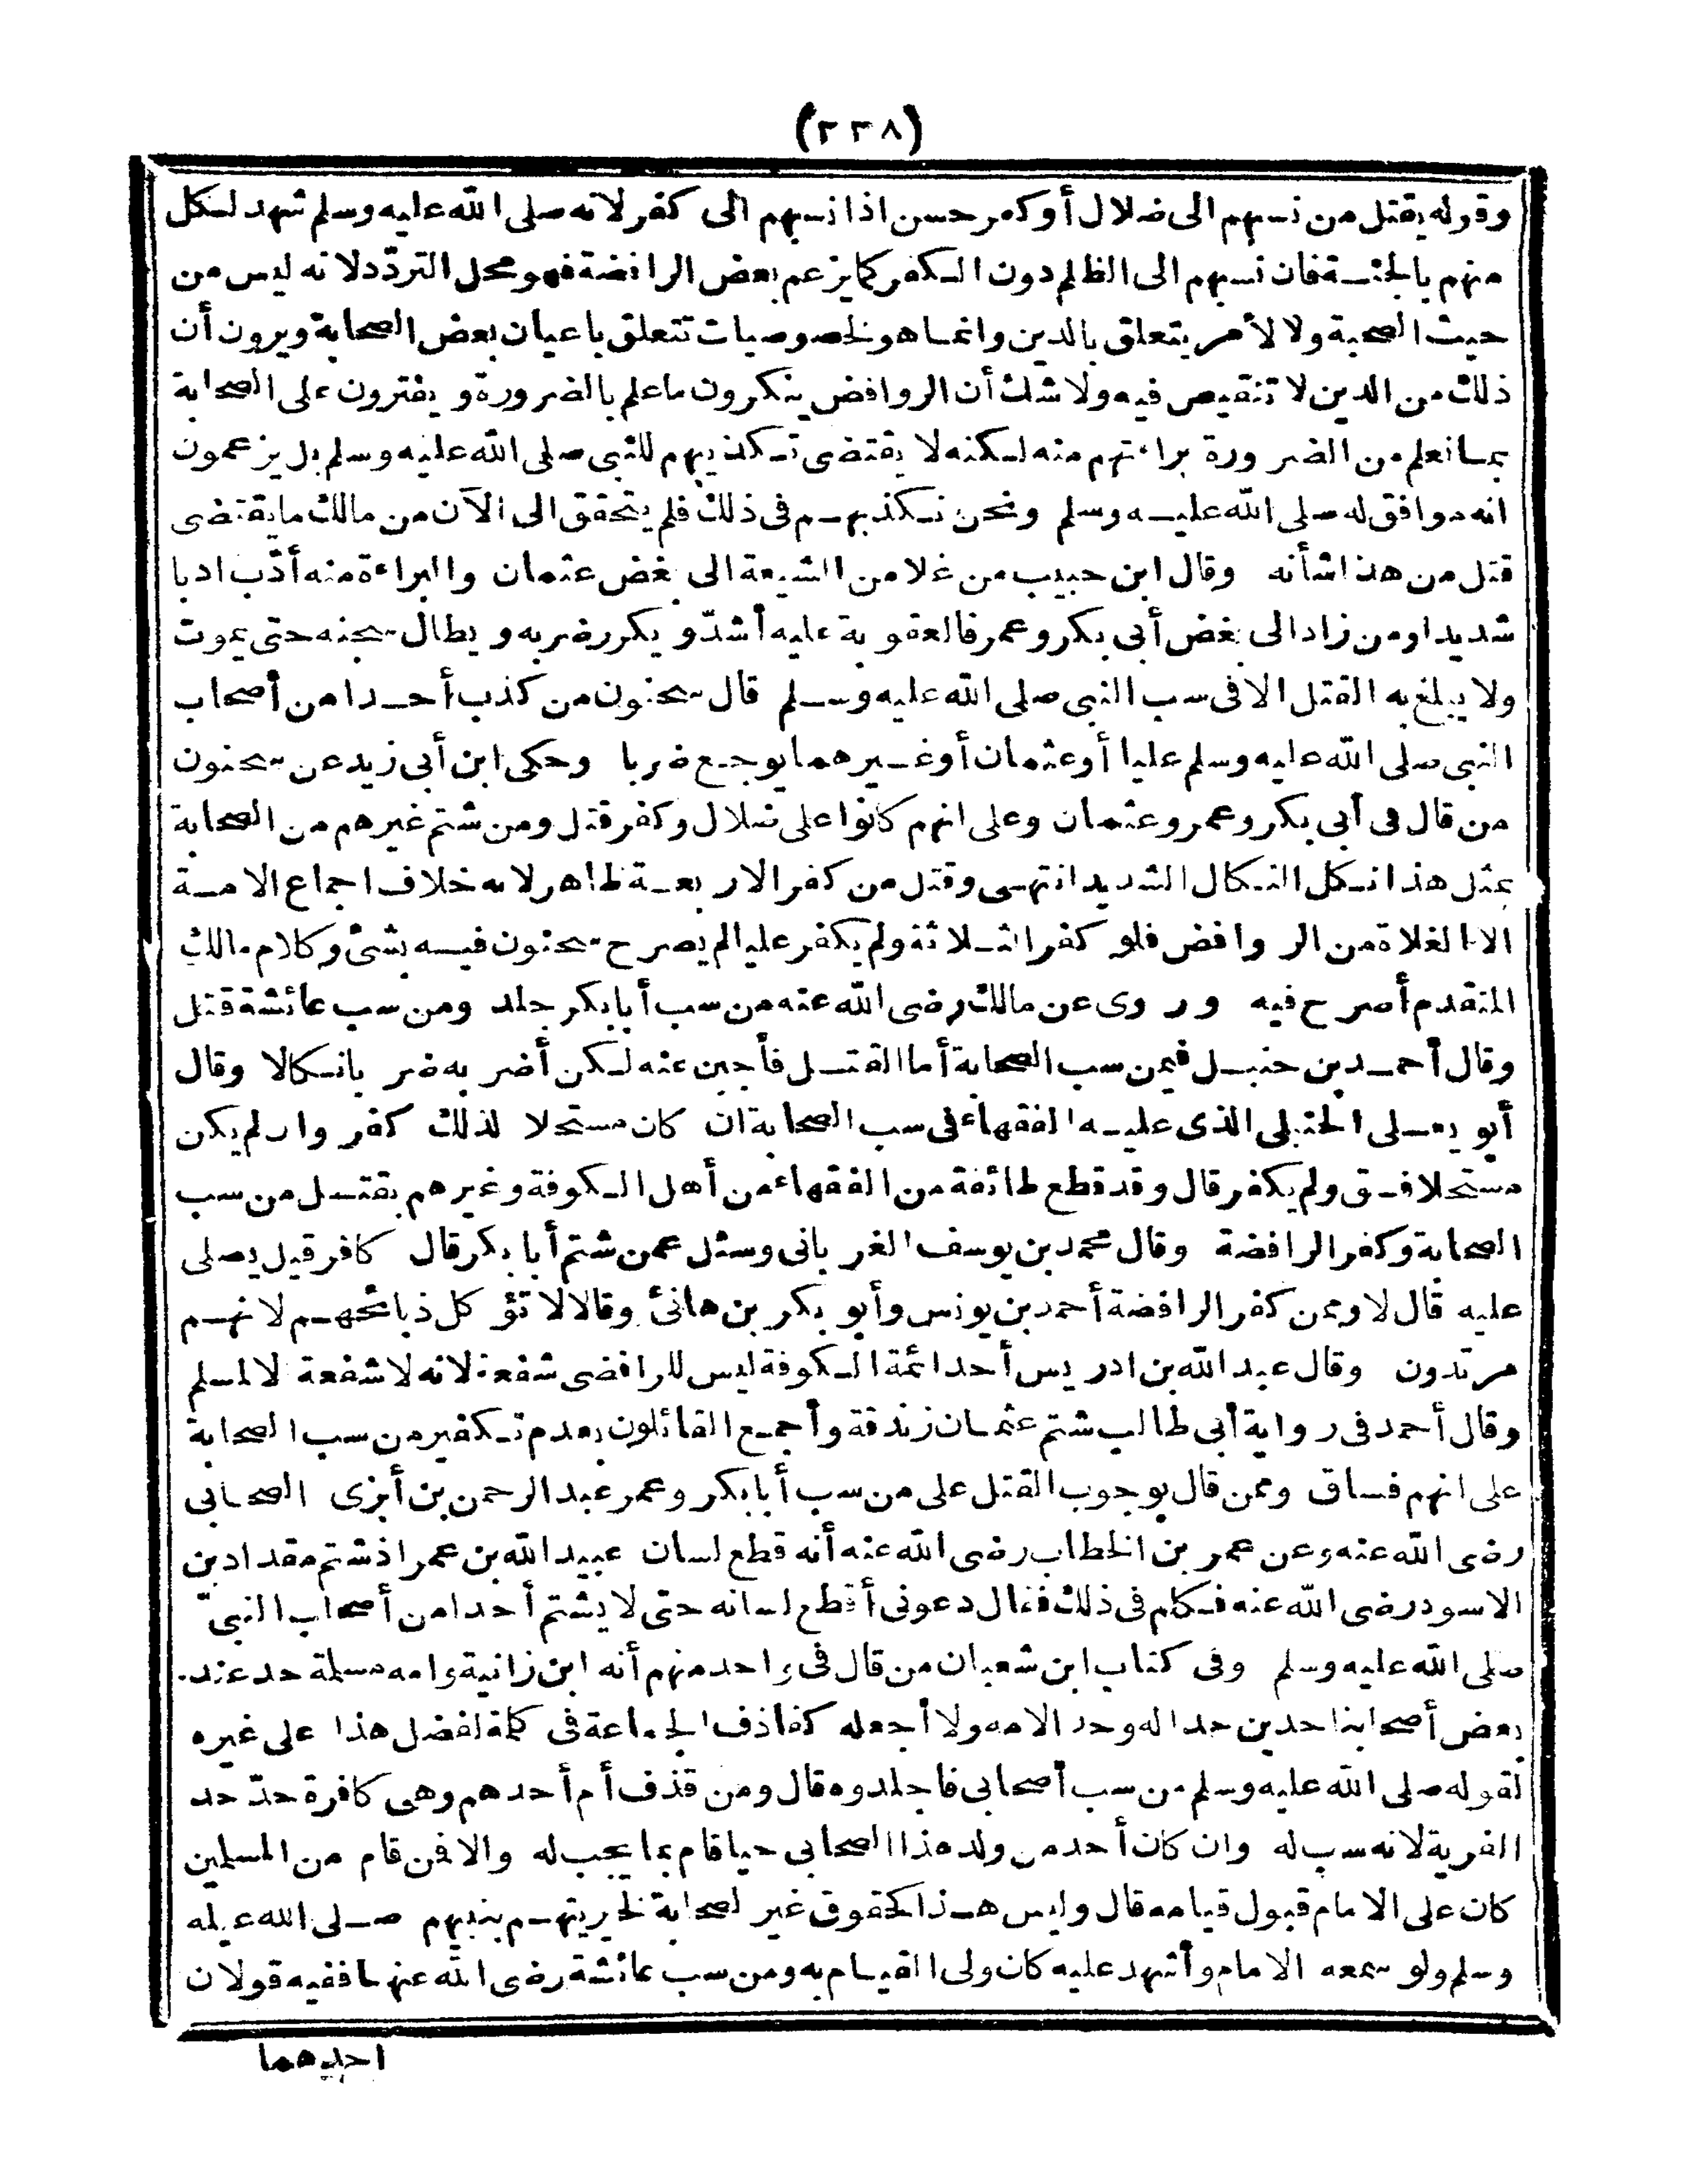 (٣٣٨)
وقوله يقتل من نسبهم الى ضلال أو كفر حسن اذا نسبهم الى كفر لانه صلى الله عليه وسلم شهد لكل
منهم بالجنة فان نسبهم الى الظلم دون الكفر كما يزعم بعض الرافضة فهو محل التردّد لانه ليس من
حيث الصحبة ولا لأمر يتعلق بالدين وانما هو لخصوصيات تتعلق باعيان بعض الصحابة ويرون أن
ذلك من الدين لا تنقيص فيه ولا شك أن الروافض ينكرون ما علم بالضرورة ويفترون على الصحابة
بما نعلم من الضرورة براءتهم منه لكنه لا يقتضى تكذيبهم للنبى صلى الله عليه وسلم بل يزعمون
انه موافق له صلى الله عليه وسلم ونحن نكذبهم فى ذلك فلم يتحقق الى الآن من مالك ما يقتضى
قتل من هذا شأنه وقال ابن حبيب من غلا من الشيعة الى بغض عثمان والبراءة منه أدّب ادبا
شديدا ومن زاد الى بغض أبى بكر وعمر فالعقوبة عليه أشدّ ويكرر ضربه ويطال سجنه حتى يموت
ولا يبلغ به القتل الا فى سب النبى صلى الله عليه وسلم قال سحنون من كذب أحدا من أصحاب
النبى صلى الله عليه وسلم عليا أو عثمان أو غيرهما يوجع ضربا وحكى ابن أبى زيد عن سحنون
من قال فى أبى بكر وعمر وعثمان وعلى انهم كانوا على ضلال وكفر قتل ومن شتم غيرهم من الصحابة
بمثل هذا نكل النكال الشديد انتهى وقتل من كفر الاربعة ظاهر لانه خلاف اجماع الامة
الا الغلاة من الروافض فلو كفر الثلاثة ولم يكفر عليا لم يصرح سحنون فيه بشئ وكلام مالك
المتقدم أصرح فيه وروى عن مالك رضى الله عنه من سب أبا بكر جلد ومن سب عائشة قتل
وقال أحمد بن حنبل فيمن سب الصحابة أما القتل فأجبن عنه لكن أضربه ضربا نكالا وقال
أبو يعلى الحنبلى الذى عليه الفقهاء فى سب الصحابة ان كان مستحلا لذلك كفر وان لم يكن
مستحلا فسق ولم يكفر قال وقد قطع طائفة من الفقهاء من أهل الكوفة وغيرهم بقتل من سب
الصحابة وكفر الرافضة وقال محمد بن يوسف الغريانى وسئل عمن شتم أبا بكر قال كافر قيل يصلى
عليه قال لا وممن كفر الرافضة أحمد بن يونس وأبو بكر بن هانئ وقالا لا تؤكل ذبائحهم لانهم
مرتدون وقال عبد الله بن ادريس أحد ائمة الكوفة ليس للرافضى شفعة لانه لا شفعة الا لمسلم
وقال أحمد فى رواية أبى طالب شتم عثمان زندقة وأجمع القائلون بعدم تكفير من سب الصحابة
على انهم فساق وممن قال بوجوب القتل على من سب أبا بكر وعمر عبد الرحمن بن أبزى الصحابى
رضى الله عنه وعن عمر بن الخطاب رضى الله عنه أنه قطع لسان عبيد الله بن عمر اذ شتم مقداد بن
الاسود رضى الله عنه فكلم فى ذلك فقال دعونى أقطع لسانه حتى لا يشتم أحدا من أصحاب النبىّ
صلى الله عليه وسلم وفى كتاب ابن شعبان من قال فى واحد منهم أنه ابن زانية وامه مسلمة حد عند
بعض أصحابنا حدين حدا له وحد الامه ولا أجعله كقاذف الجماعة فى كلمة لفضل هذا على غيره
لقوله صلى الله عليه وسلم من سب أصحابى فاجلدوه قال ومن قذف أم أحدهم وهى كافرة حدّ حد
الفرية لانه سب له وان كان أحد من ولد هذا الصحابى حيا قام بما يجب له والا فمن قام من المسلمين
كان على الامام قبول قيامه قال وليس هذا كحقوق غير لصحابة لحريتهم بنبيهم صلى الله عيله
وسلم ولو سمعه الامام وأشهد عليه كان ولى القيام به ومن سب عائشة رضى الله عنها ففيه قولان
احديهما